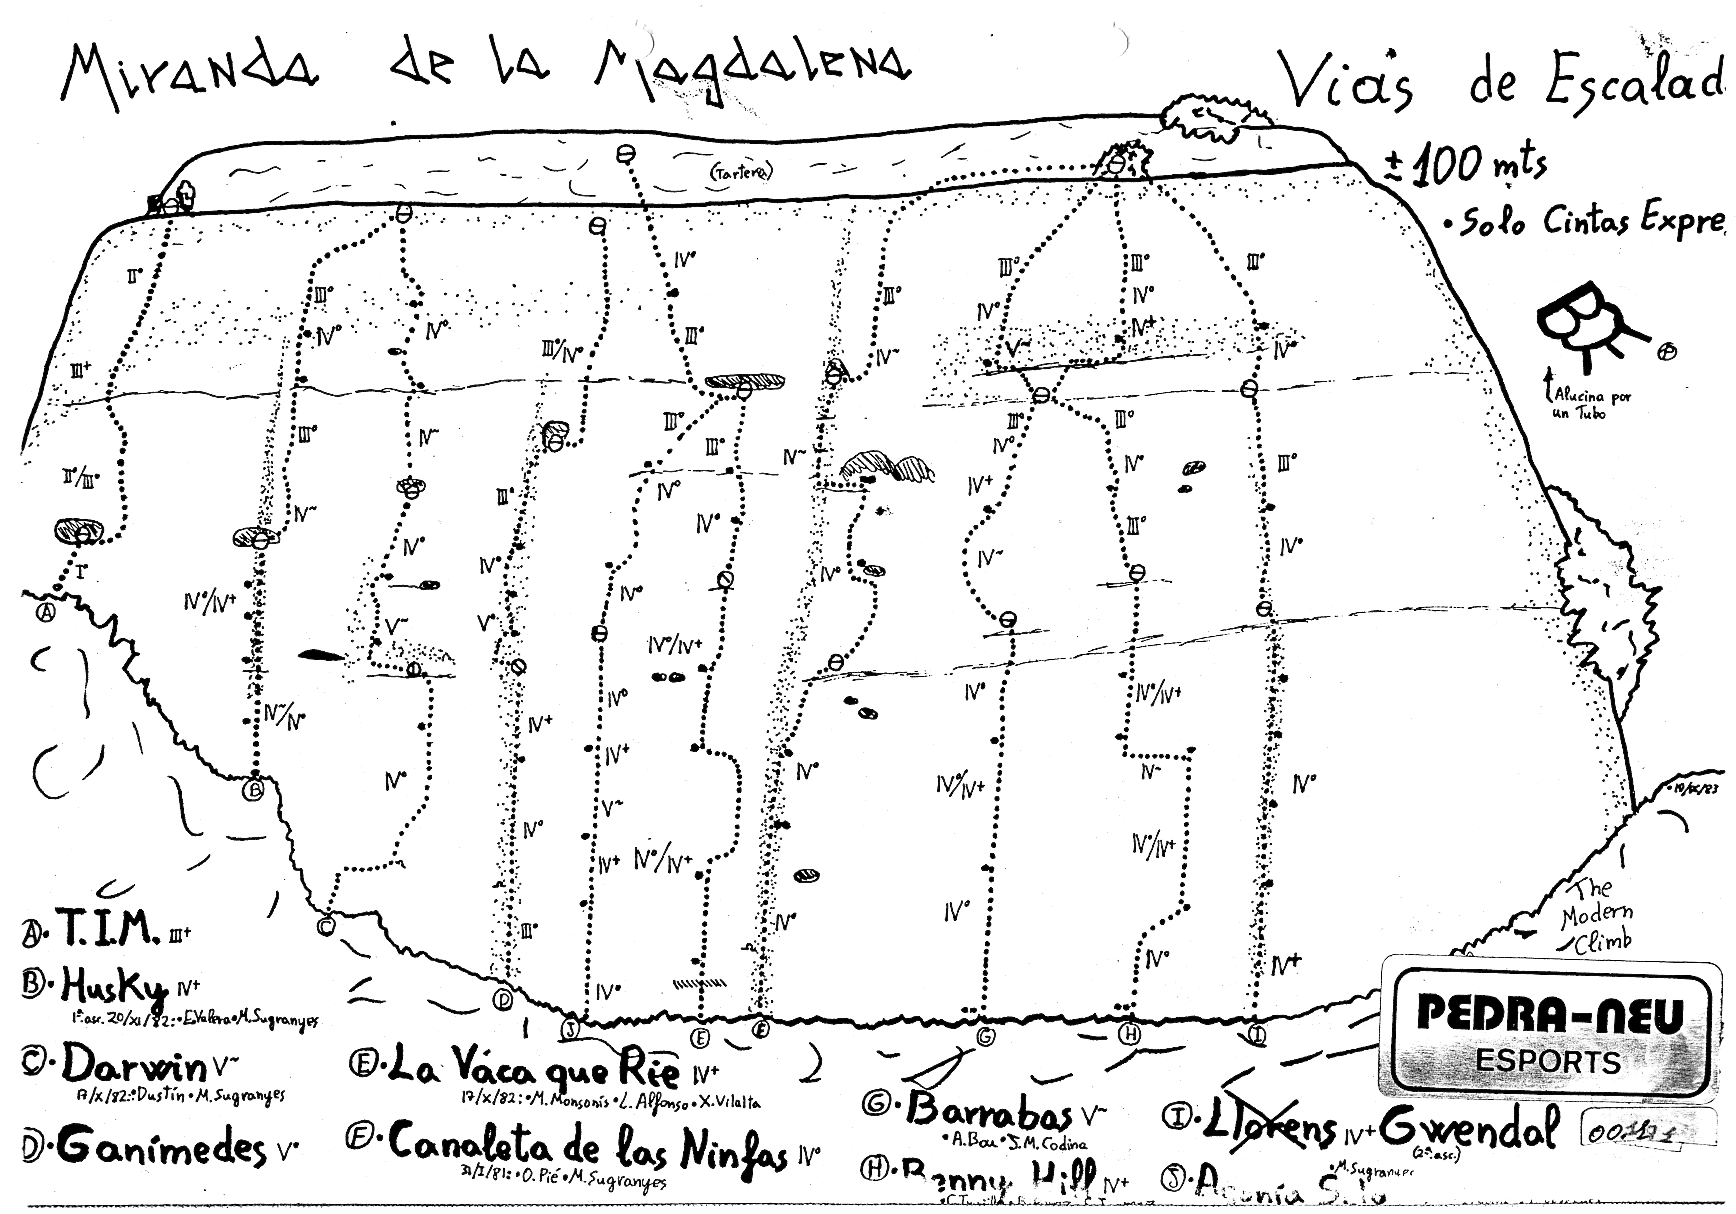 Miranda de la Magdalena
Vias de Escalad
± 100 mts
• Solo Cintas Expre
(Tartera)
Alucina por
un Tubo
II°
III+
II°/III°
I°
III°
IV°
III°
IV~
IV°/IV+
IV~/IV°
IV°
IV~
IV°
V~
IV°
III/IV°
III°
IV°
V°
IV+
IV°
III°
IV°
III°
III°
IV°
IV°
IV°
IV+
V~
IV+
IV°
III°
IV°
IV°/IV+
IV°/IV+
III°
IV~
IV~
IV°
IV°
IV°
III°
IV°
V~
III°
IV°
IV+
IV~
IV°
IV°/IV+
IV°
III°
IV°
IV+
III°
IV°
III°
IV°/IV+
IV~
IV°/IV+
IV°
III°
IV°
III°
IV°
IV°
IV+
A
B
C
D
J
E
F
G
H
I
The
Modern
Climb
PEDRA-NEU
ESPORTS
A. T.I.M. III+
B. Husky IV+
1ª asc. 20/XI/82: • E.Valera • M.Sugranyes
C. Darwin V~
17/X/82: Dustin • M. Sugranyes
D. Ganímedes V°
E. La Vaca que Rie IV+
17/X/82: • M. Monsonís • L. Alfonso • X. Vilalta
F. Canaleta de las Ninfas IV°
31/I/81: • O. Pié • M. Sugranyes
G. Barrabas V~
• A. Bou • J.M. Codina
H. Benny Hill IV+
I. Llorens IV+ Gwendal
(2ª asc.)
• M. Sugranyes
J. Agonía